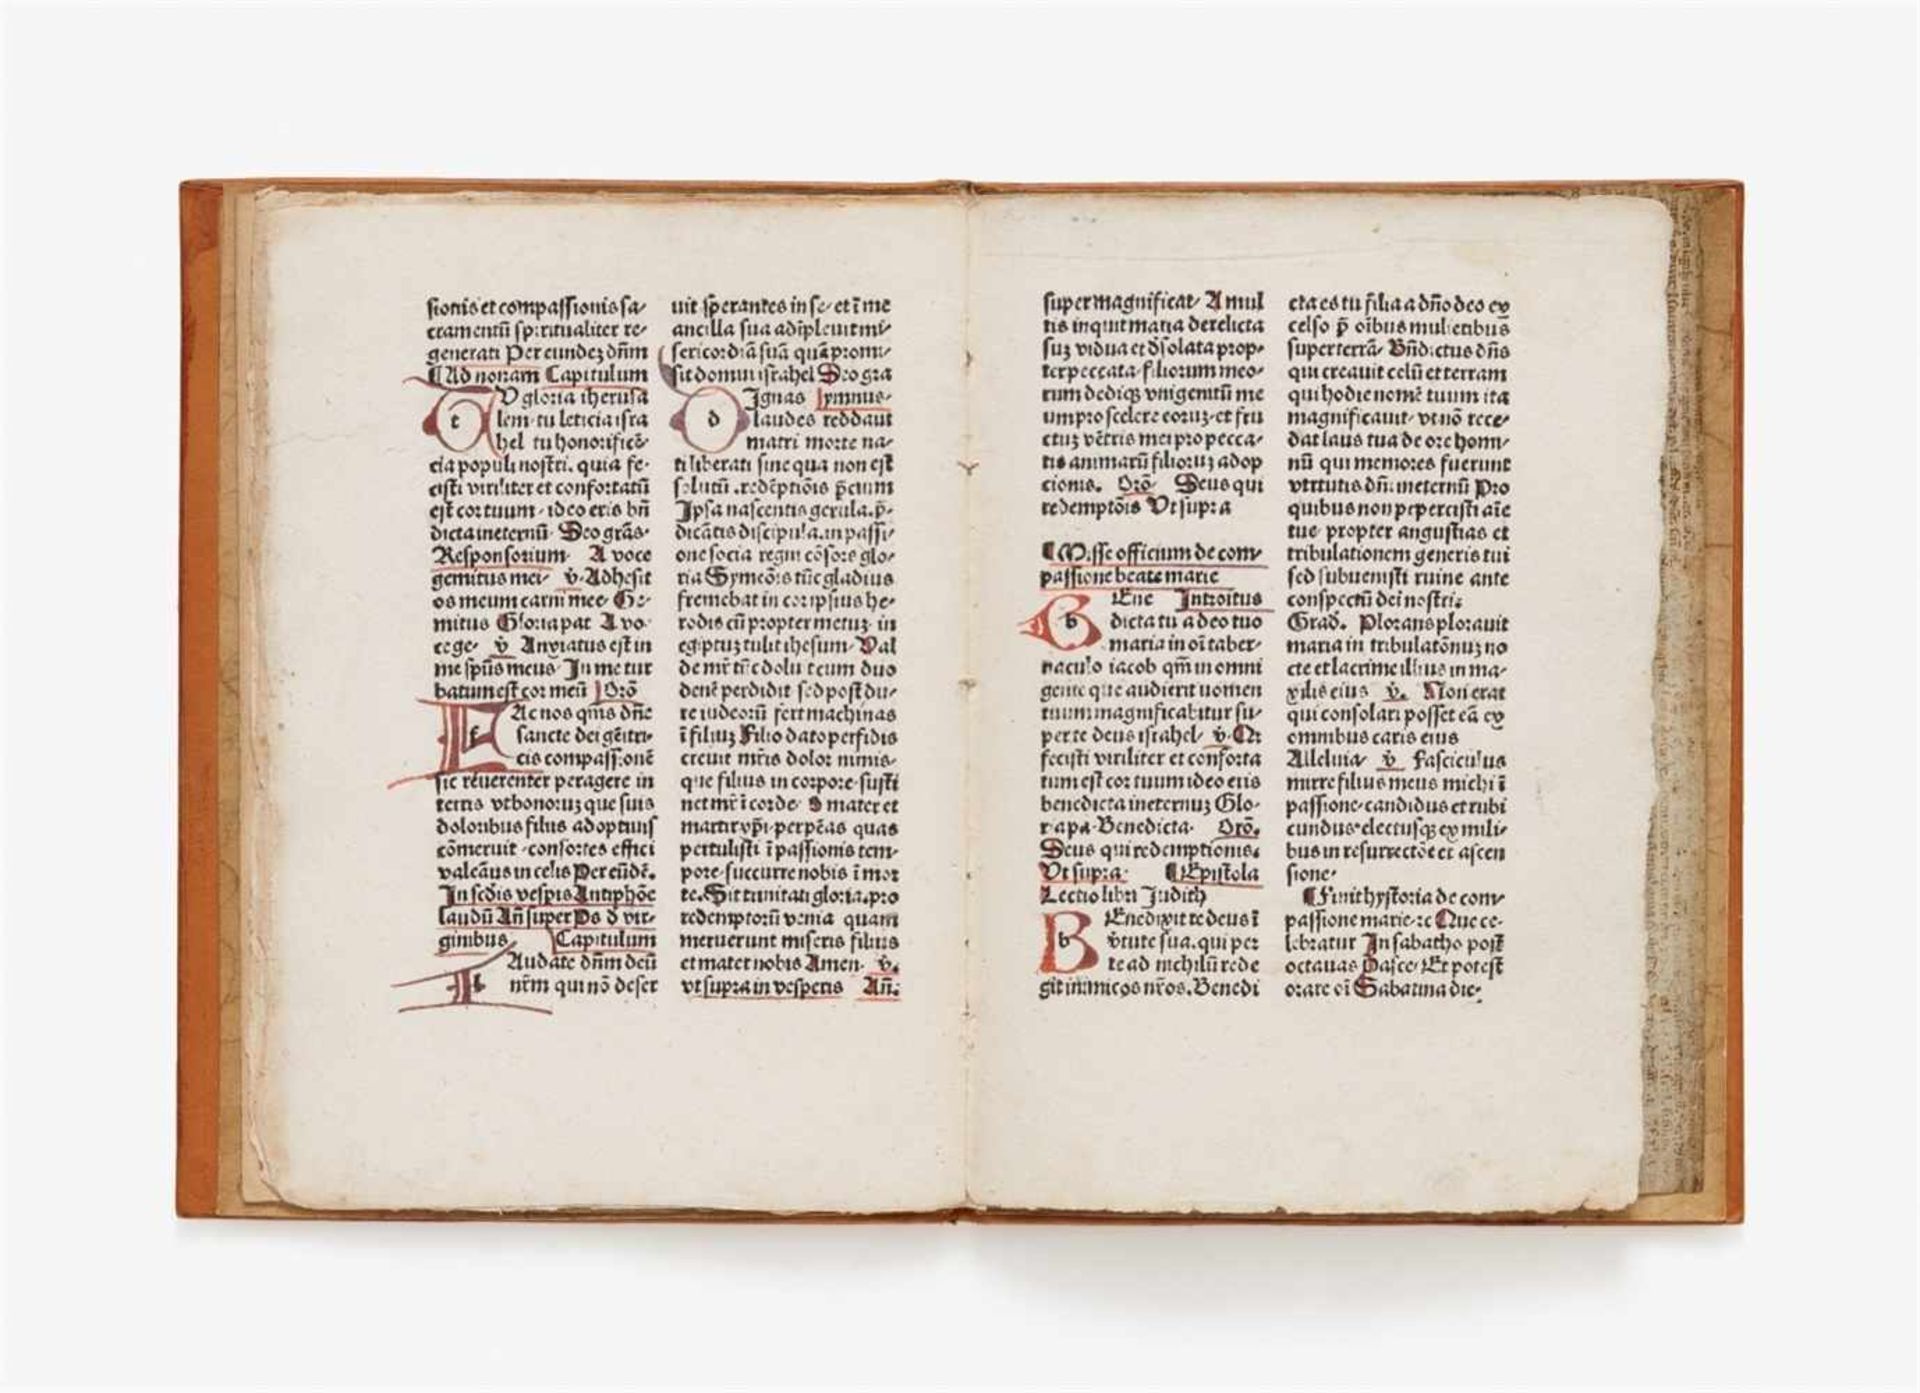 sionis et compassionis sa-
cramentū spiritualiter re-
generati Per eundez dn̄m
¶Ad nonam Capitulum
tU gloria iherusa
lem tu leticia isra
hel tu honorificē-
cia populi nostri. quia fe-
cisti viriliter et confortatū
est cor tuum. ideo eris bn̄
dicta ineternū. Deo grās-
Responsorium. A voce
gemitus mei. v̄. Adhesit
os meum carni mee. Ge-
mitus Gloria pat A vo-
cege. v̄ Anxiatus est in
me spūs meus. In me tur
batum est cor meū Orō
fAc nos qm̄s dn̄e
sancte dei gēitri-
cis compassionē
sic reuerenter peragere in
terris vt bonoruz que suis
doloribus filius adoptiuis
cōmeruit. consortes effici
valeāus in celis Per eūdē.
In sedis vespis Antiphōe
laudū An̄ super Ps d vir-
ginibus Capitulum
lAudate dn̄m deū
nr̄m qui nō deser
uit sperantes in se. et ī me
ancilla sua adīpleuit mi-
sericordiā suā quā promi-
sit domui israhel Deo gra
dIgnas Iymnus
laudes reddant
matri morte na-
ti liberati sine qua non est
solutū. redēptiōis p̄cium
Ipsa nascentis gerula. p̄-
dicātis discipula. in passi-
one socia regni cōsors glo-
ria Symeōis tūc gladius
fremebat in cor ipsius he-
rodis cū propter metuz in
egiptuz tulit ihesum. Val
de mr̄ tūc dolu t cum duo
denē perdidit sed post du-
re iudeorū fert machinas
ī filiuz Filio dato perfidis
creuit mr̄is dolor nimis-
que filius in corpore. susti
net mr̄ ī corde. O mater et
martir xp̄i. perpēas quas
pertulisti ī passionis tem-
pore. succurre nobis ī mor
te. Sit trinitati gloria. pro
redemptorū venia quam
meruerunt miseris filius
et mater nobis Amen. v̄.
vt supra in vesperis An̄.
super magnificat. A mul
tis inquit maria derelicta
suz vidua et dsolata prop-
ter peccata filiorum meo-
rum dediqz vnigenitū me
um pro scelere eoruz. et fru
ctuz vētris mei pro pecca-
tis animarū filioruz adop
cionis. Orō. Deus qui
redemptōis Vt supra
¶Misse officium de com-
passione beate marie
bEne Introitus
dicta tu a deo tuo
maria in oī taber-
naculo iacob qm̄ in omni
gente que audierit nomen
tuum magnificabitur su-
per te deus israhel. v̄. Qr
fecisti viriliter et conforta
tum est cor tuum ideo eris
benedicta ineternuz Glo-
ria pa. Benedicta. Orō.
Deus qui redemptionis.
Vt supra. ¶Epistola
Lectio libri Judith
bEnedixit te deus ī
v̄tute sua. qui per
te ad nichilū rede
git inimicos nr̄os. Benedi
cta es tu filia a dn̄o deo ex
celso p̄ oībus mulieribus
super terrā. Bn̄dictus dn̄s
qui creauit celū et terram
qui hodie nomē tuum ita
magnificauit. vt nō rece-
dat laus tua de ore homi-
nū qui memores fuerunt
virtutis dn̄i ineternū Pro
quibus non pepercisti aīe
tue propter angustias et
tribulationem generis tui
sed subuenisti ruine ante
conspectū dei nostri.
Grad. Plorans plorauit
maria in tribulatōnuz no
cte et lacrime illius in ma-
xilis eius v̄. Non erat
qui consolari posset eā ex
omnibus caris eius
Alleluia. v̄ Fasciculus
mirre filius meus michi ī
passione. candidus et rubi
cundus. electusqz ex mili-
bus in resurrectōe et ascen
sione.
¶Finit hystoria de com-
passione marie. zc Que ce-
lebratur In sabatho post
octauas Pasce. Et potest
orare oī Sabatina die.